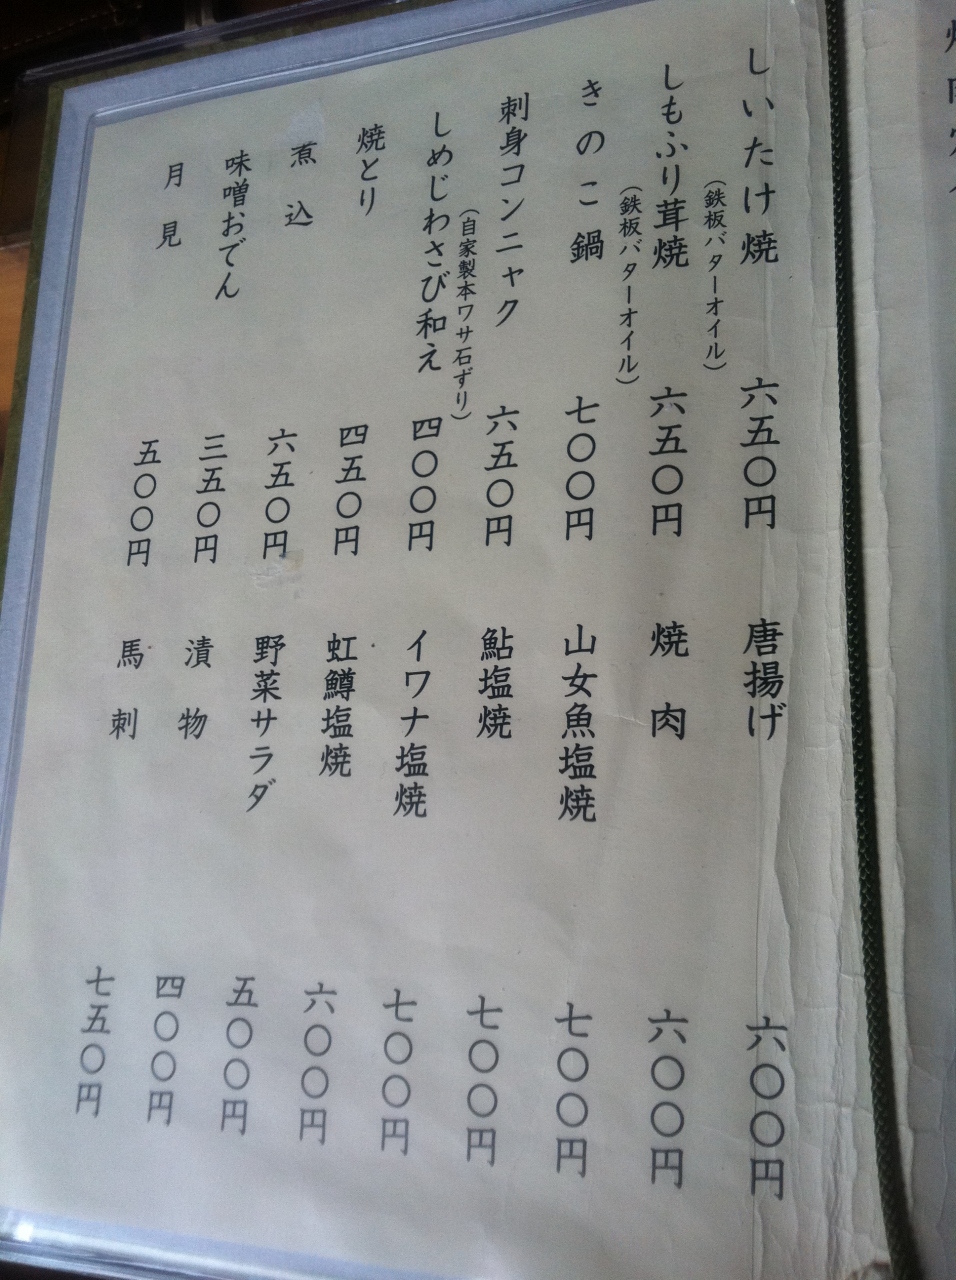 しいたけ焼 六五〇円
（鉄板バターオイル）
しもふり茸焼 六五〇円
（鉄板バターオイル）
きのこ鍋 七〇〇円
刺身コンニャク 六五〇円
（自家製本ワサ石ずり）
しめじわさび和え 四〇〇円
焼とり 四五〇円
煮込 六五〇円
味噌おでん 三五〇円
月見 五〇〇円
唐揚げ 六〇〇円
焼肉 六〇〇円
山女魚塩焼 七〇〇円
鮎塩焼 七〇〇円
イワナ塩焼 七〇〇円
虹鱒塩焼 六〇〇円
野菜サラダ 五〇〇円
漬物 四〇〇円
馬刺 七五〇円